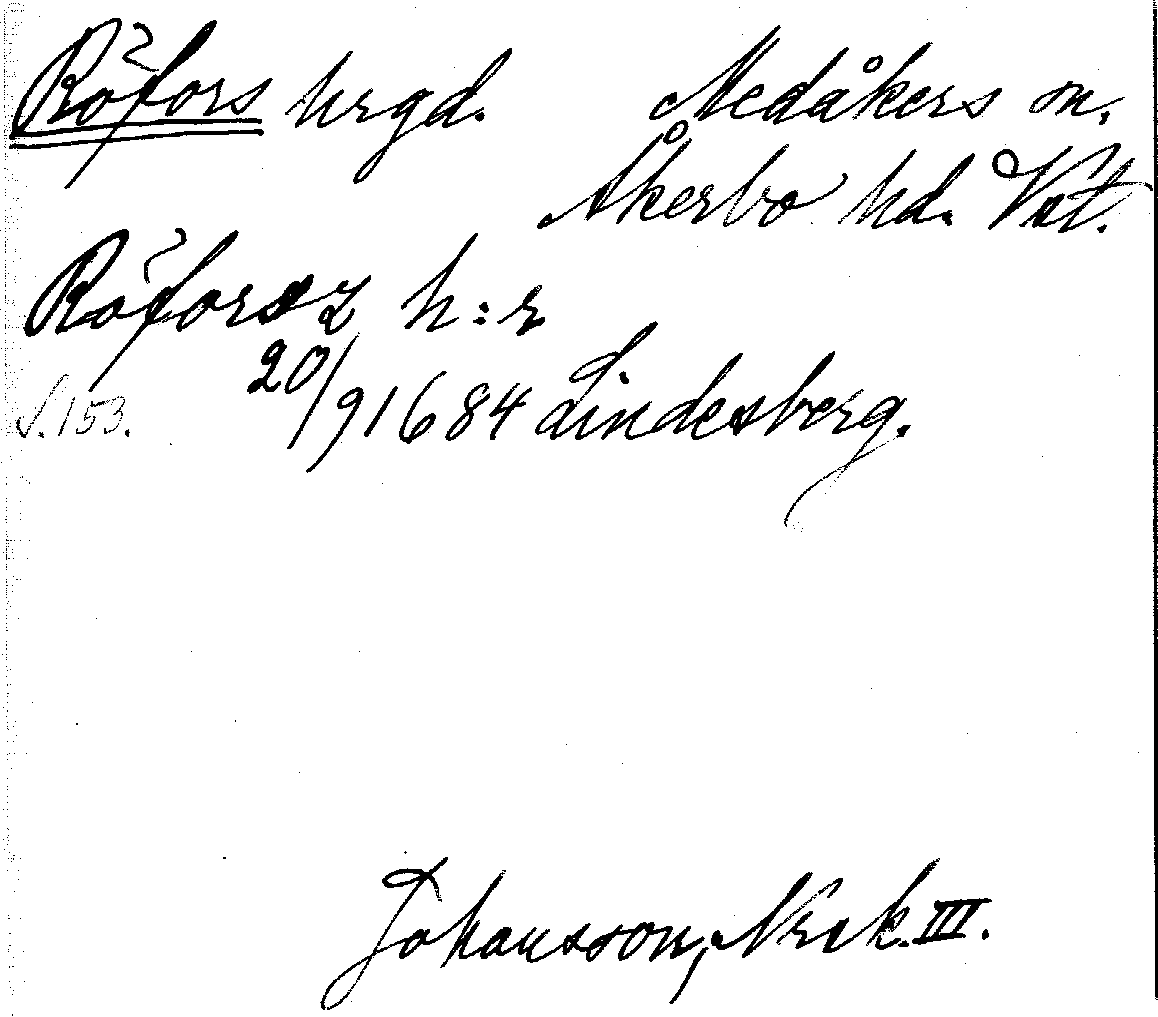 Röfors hrgd. Medåkers sn.
Åkerbo hd. Vstl.
Röforsz h:r
S.153. 20/9 1684 Lindesberg.
Johansson, Nrsk. III.